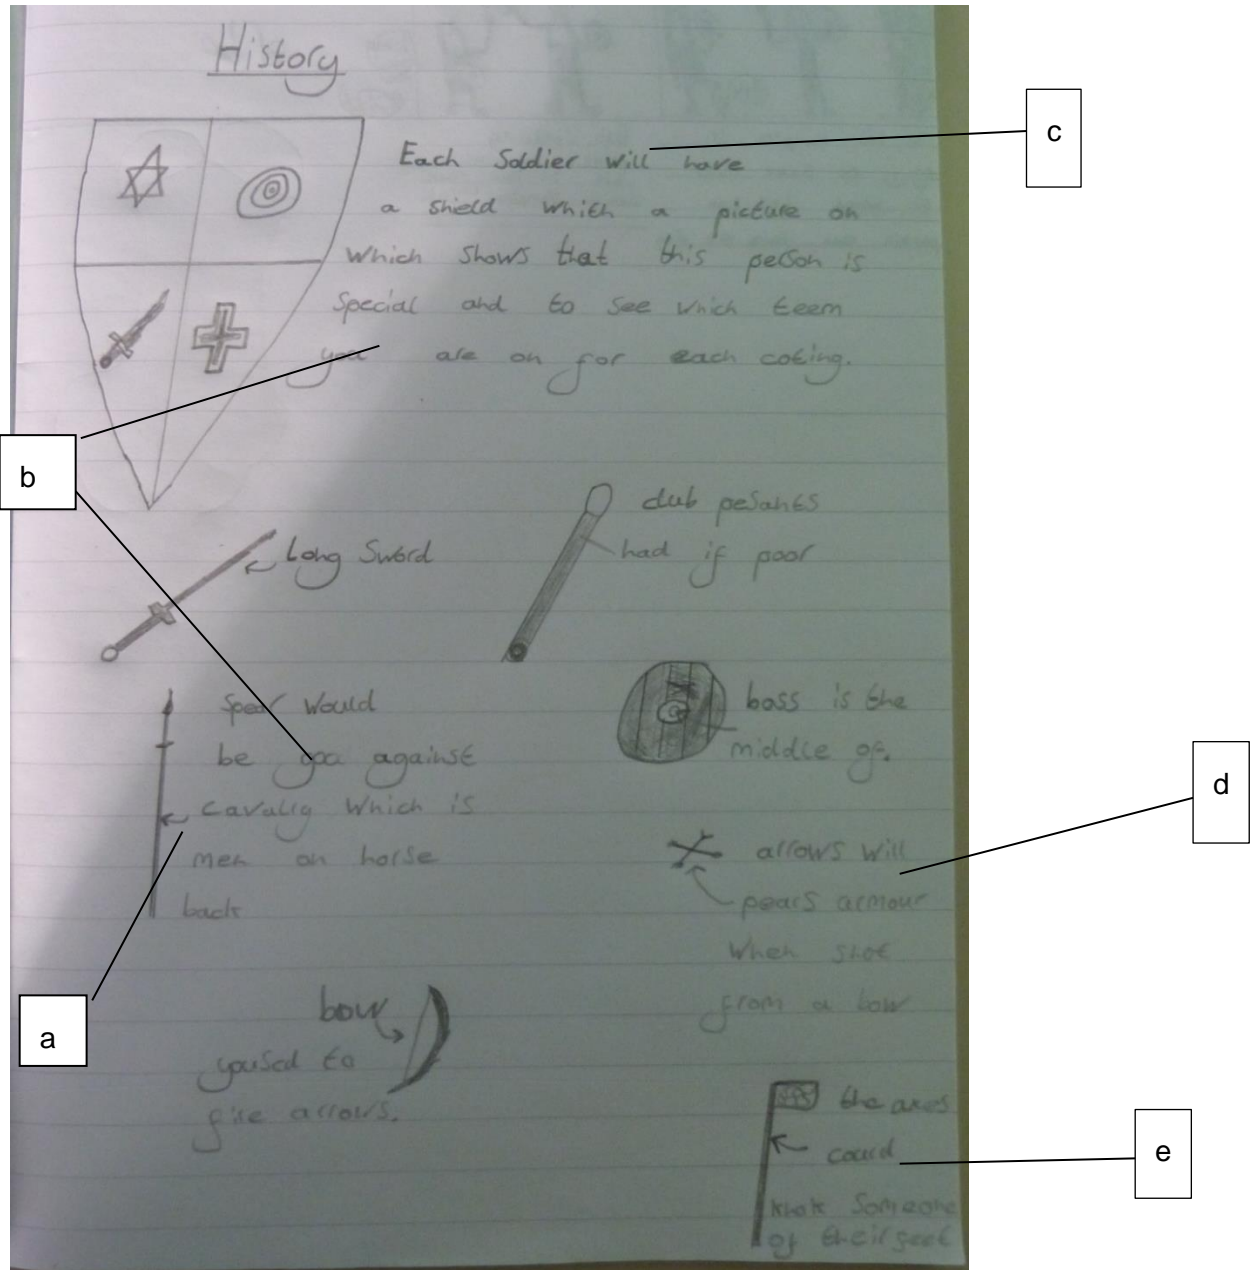 History
c
Each Soldier will have
a shield which a picture on
which shows that this person is
special and to see which teem
you are on for each coking.
b
club pesants
had if poor
Long Sword
Spear would
be you against
cavalry which is
men on horse
back
boss is the
middle of.
d
arrows will
pears armour
when shot
from a bow
a
bow
yoused to
fire arrows.
e
the axes
could
knok someone
of their feet